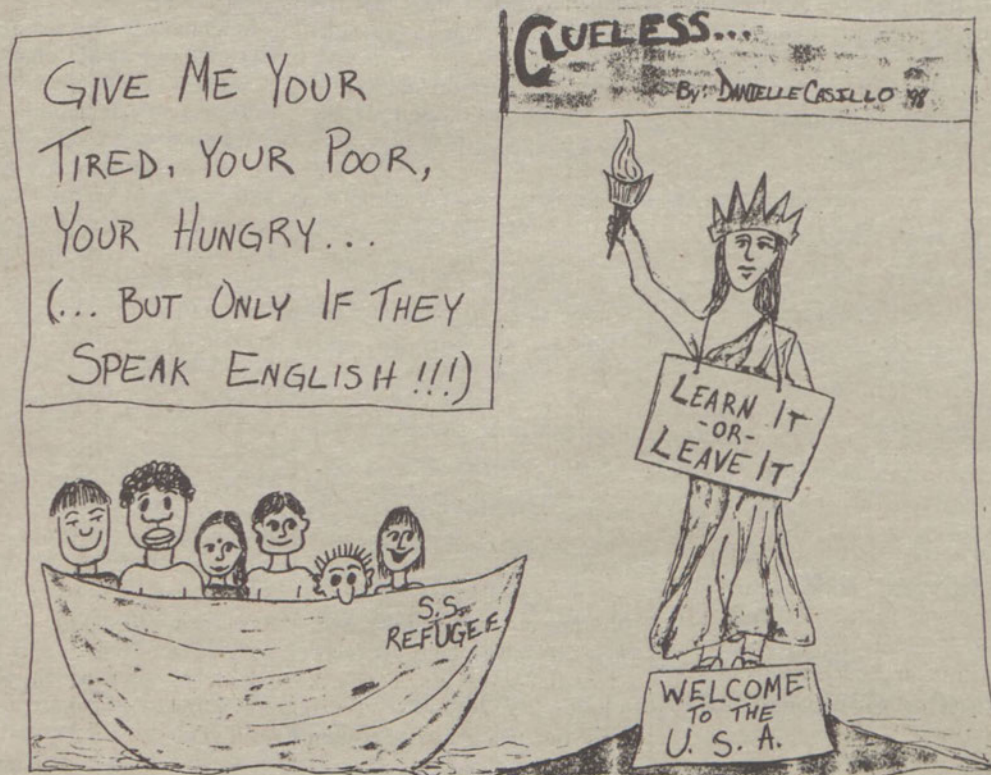 GIVE ME YOUR
TIRED, YOUR POOR,
YOUR HUNGRY...
(... BUT ONLY IF THEY
SPEAK ENGLISH !!!)
CLUELESS...
By: DANIELLE CASILLO '98
LEARN IT
-OR-
LEAVE IT
S.S.
REFUGEE
WELCOME
TO THE
U. S. A.